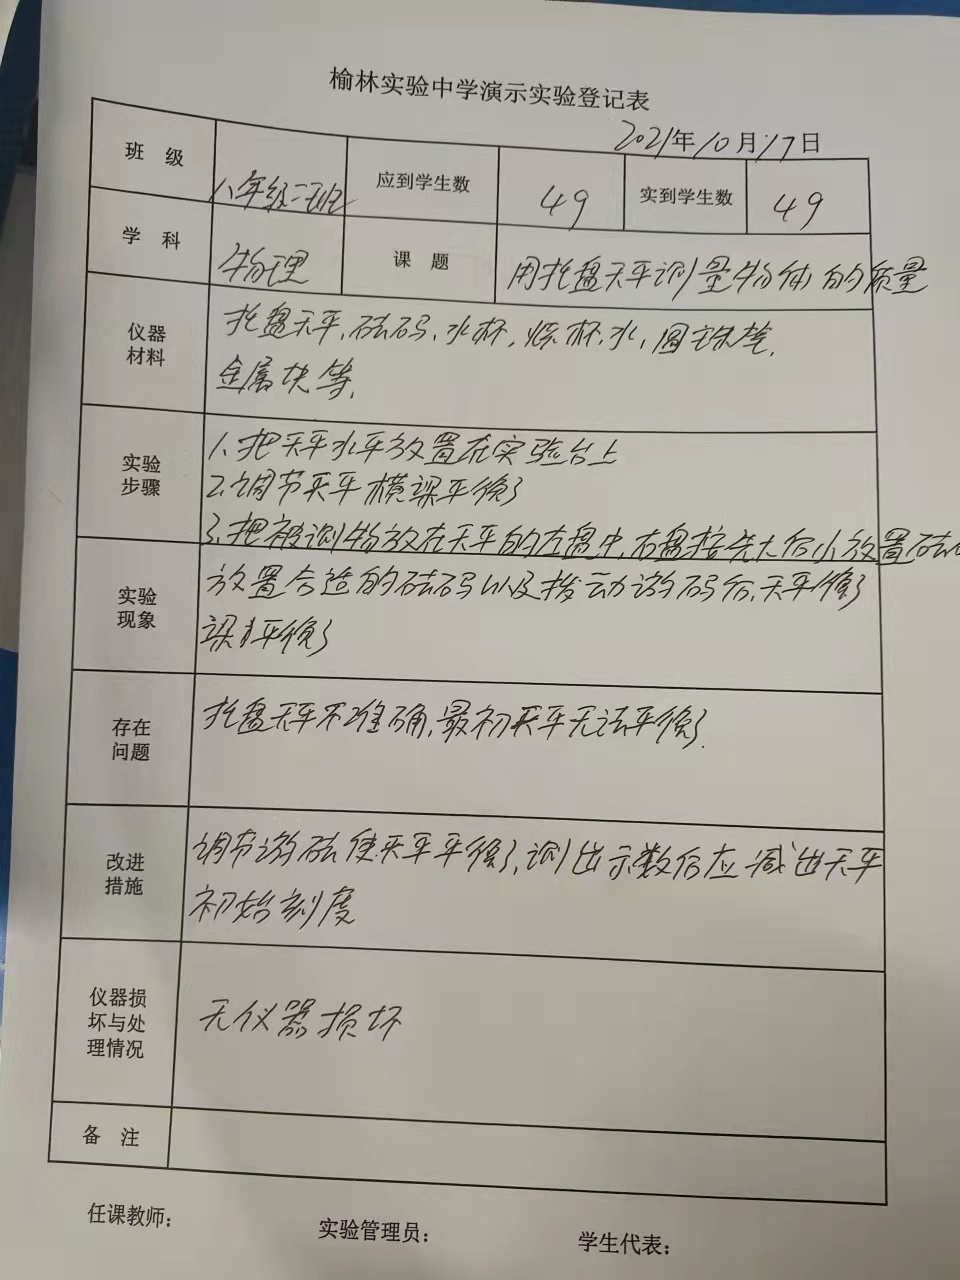 榆林实验中学演示实验登记表
2021年10月17日
班 级 八年级二班 应到学生数 49 实到学生数 49
学 科 物理 课 题 用托盘天平测量物体的质量
仪器材料 托盘天平,砝码,水杯,烧杯,水,圆铁柱,
金属块等,
实验步骤 1.把天平水平放置在实验台上
2.调节天平横梁平衡
3.把被测物放在天平的左盘中,右盘按先大后小放置砝码
实验现象 放置合适的砝码以及拨动游码后,天平衡
梁平衡
存在问题 托盘天平不准确,最初天平无法平衡.
改进措施 调节游砝使天平平衡,测出示数后应减出天平
初始刻度
仪器损坏与处理情况 无仪器损坏
备 注
任课教师: 实验管理员: 学生代表: